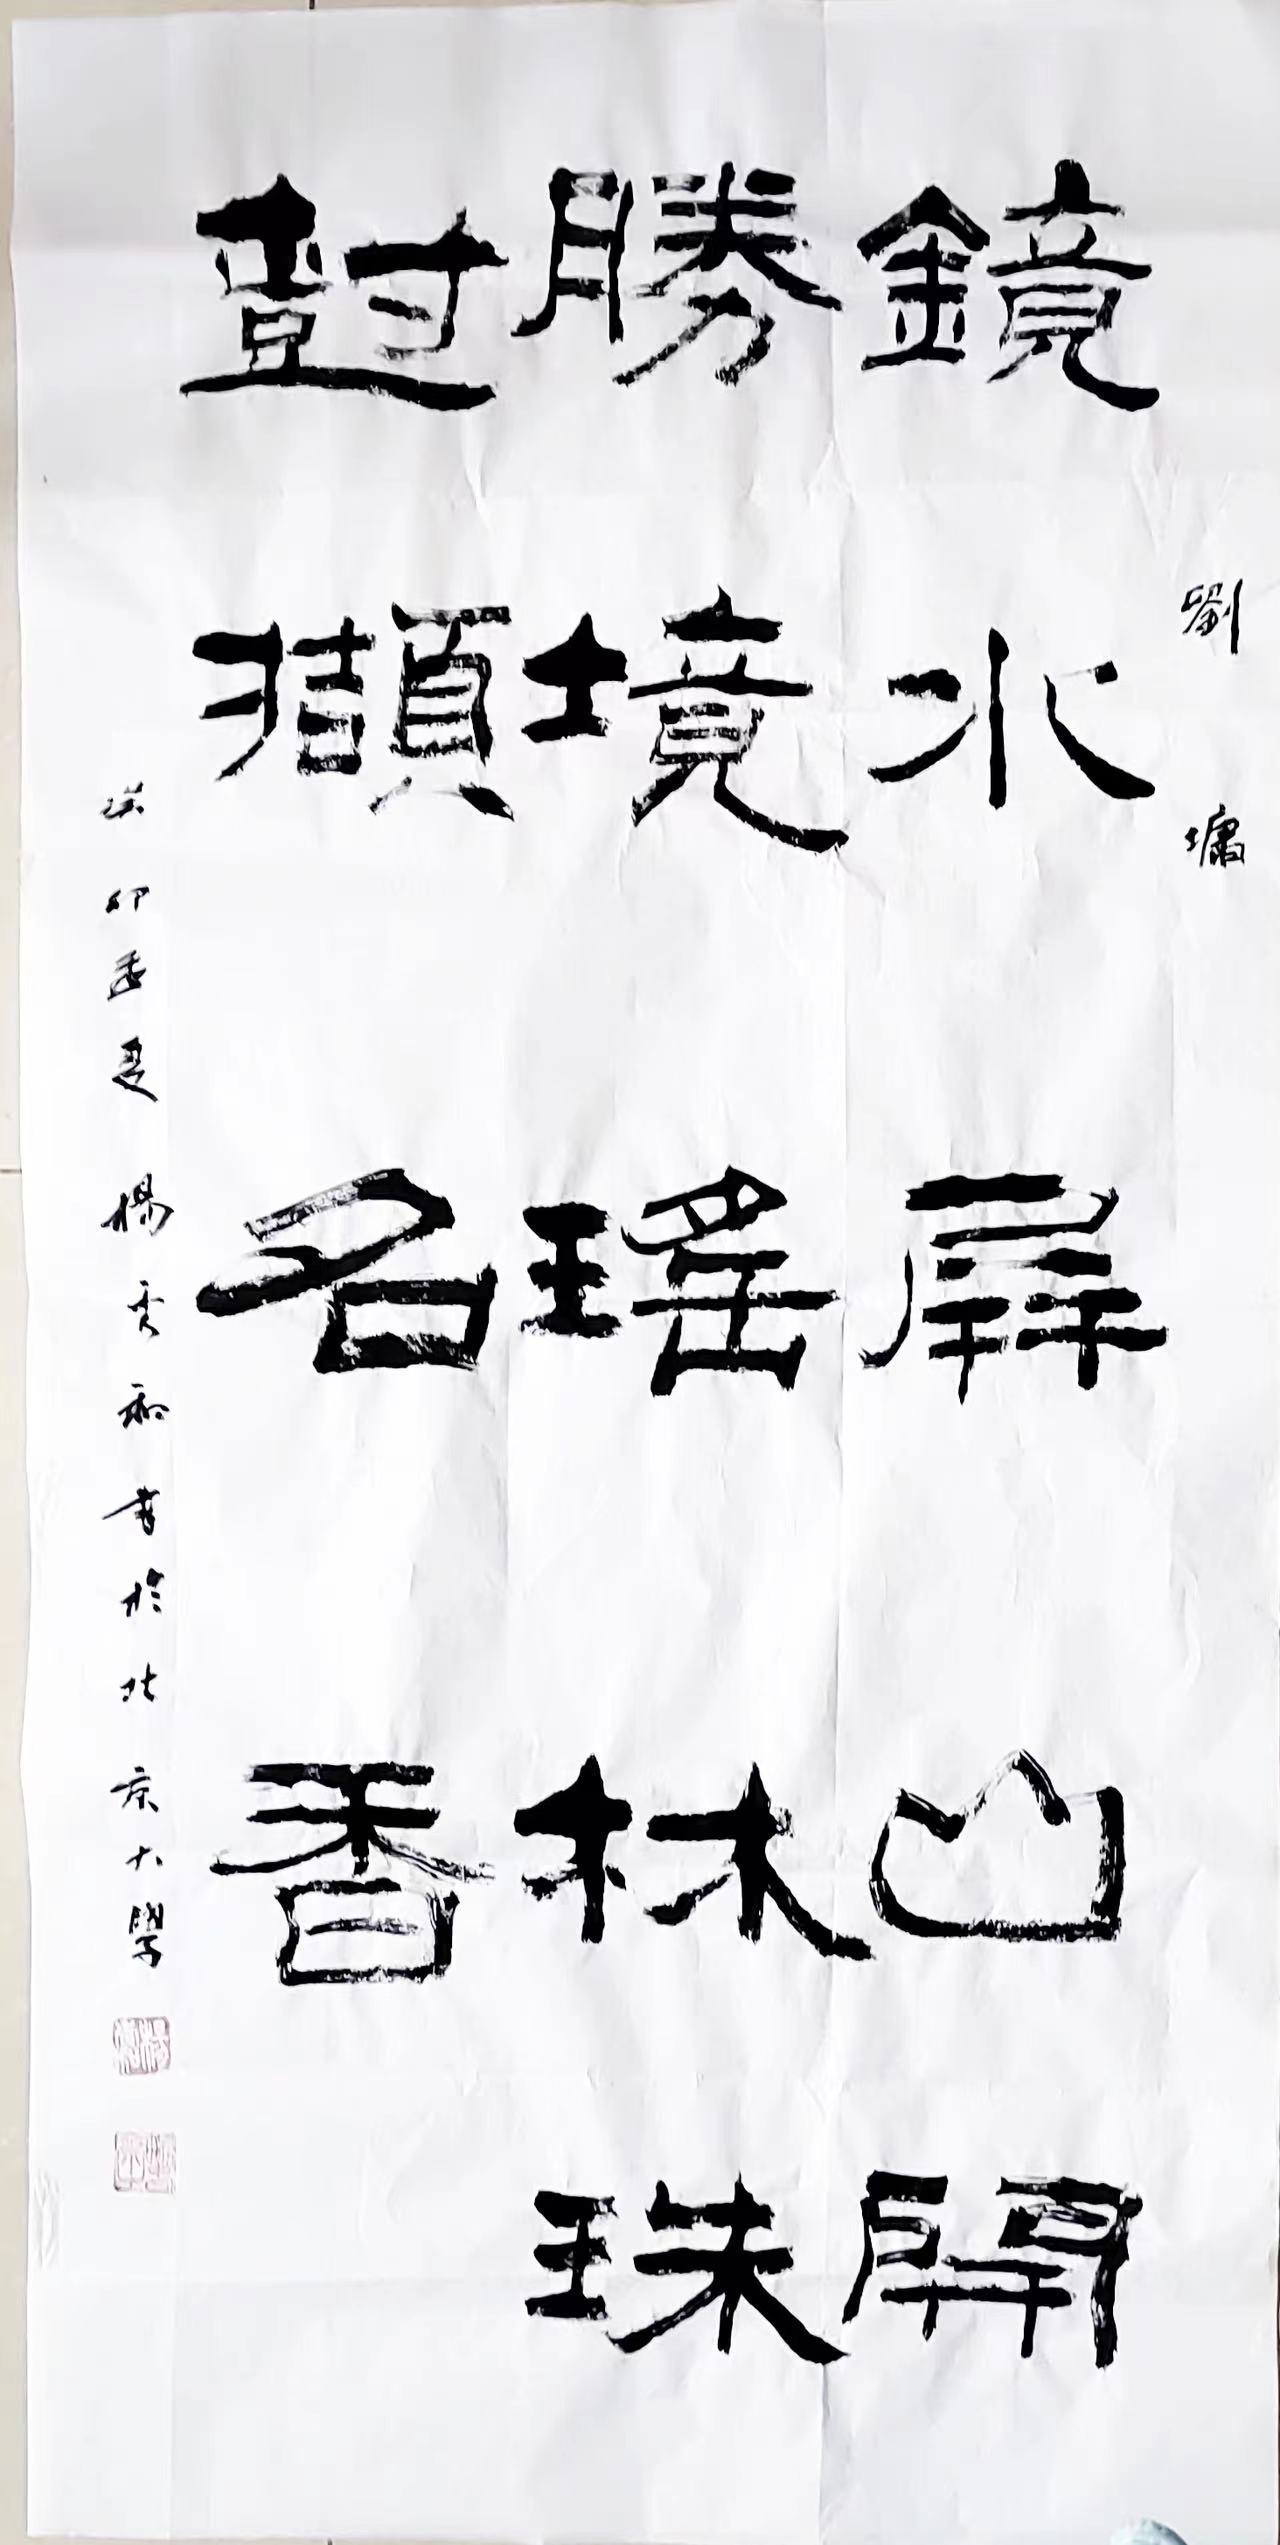 劉墉
鏡水屏山開
勝境瑤林珠
尌擷名香
癸卯孟夏楊和書於北京大學